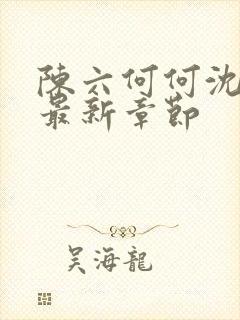 陳六何何沈
最新章節
吳海龍